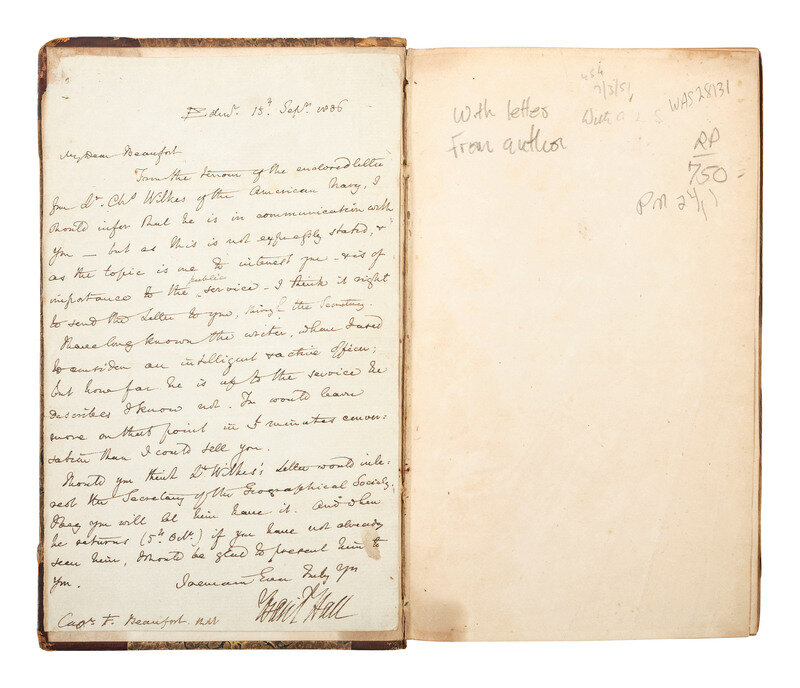 Edinr. 13th Sepr. 1836
My dear Beaufort
From the tenour of the enclosed letter
from Lt. Chs. Wilkes of the American Navy, I
should infer that he is in communication with
you — but as this is not expressly stated, &
as the topic is one to interest you & is of
importance to the public service — I think it right
to send the letter to you, through the Secretary.
I have long known the writer, whom I used
to consider an intelligent & active officer;
but how far he is up to the service he
describes I know not. You would learn
more on that point in 5 minutes conver=
sation than I could tell you.
Should you think Lt. Wilkes's letter would inte=
rest the Secretary of the Geographical Society,
I beg you will let him have it. And when
he returns (5th Octr.) if you have not already
seen him, I should be glad to present him to
you.
I remain Ever truly yrs
Basil Hall
Captn. F. Beaufort. R.N.
With letter
From author
454
7/3/51
With
WAS28131
RP
750
PM 24/1